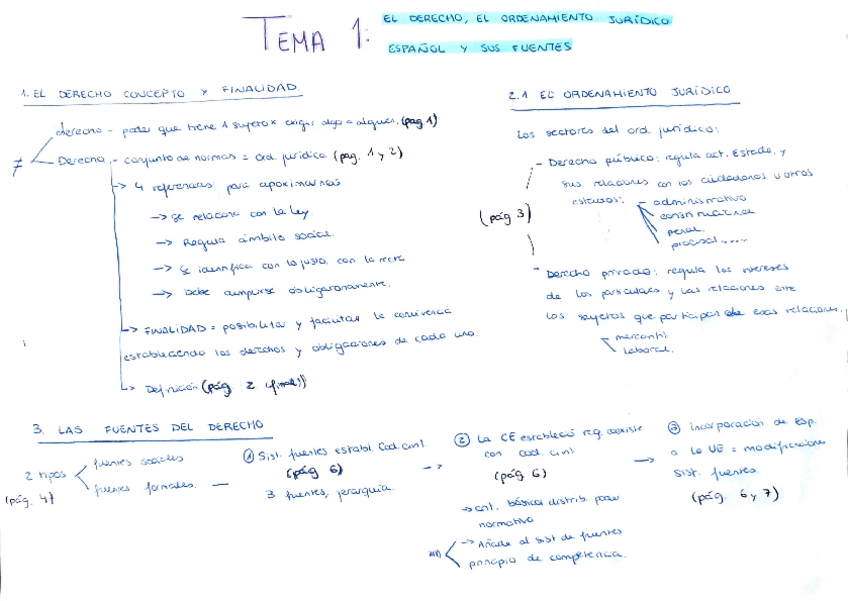 TEMA 1: EL DERECHO, EL ORDENAMIENTO JURÍDICO
ESPAÑOL Y SUS FUENTES
1. EL DERECHO CONCEPTO Y FINALIDAD
≠
derecho - poder que tiene 1 sujeto x exigir algo a alguien. (pag 1)
Derecho, - conjunto de normas = Ord. jurídico (pag. 1 y 2)
-> 4 referencias para aproximarnos
-> se relaciona con la ley.
-> Regula ámbito social.
-> Se identifica con lo justo, con lo recto
-> Debe cumplirse obligatoriamente.
-> FINALIDAD = posibilitar y facilitar la convivencia
estableciendo los derechos y obligaciones de cada uno.
-> Definición (pág 2 (final))
2.1 EL ORDENAMIENTO JURÍDICO
Los sectores del ord. jurídico:
(pág 3)
- Derecho público: regula act. Estado, y
sus relaciones con los ciudadanos u otros
estados: - administrativo
constitucional
penal
procesal.....
- Derecho privado: regula los intereses
de los particulares y las relaciones entre
los sujetos que participan de esas relaciones.
mercantil
laboral.
3. LAS FUENTES DEL DERECHO
2 tipos
(pág. 4)
fuentes sociales
fuentes formales. —
① Sist. fuentes establ. Cod. civil.
(pág 6)
3 fuentes, jerarquía.
->
② La CE estableció reg. coexiste
con cod. civil
(pág 6)
-> cnt. básica distrib. poder
normativo
-> Añade al sist de fuentes
principio de competencia.
->
③ Incorporación de Esp.
a la UE = modificaciones
sist. fuentes.
(pág. 6 y 7)